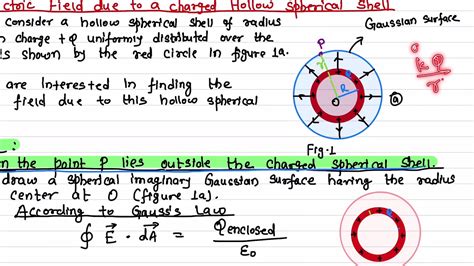 ctric Field due to a charged Hollow Spherical Shell
Consider a hollow spherical shell of radius
n charge +Q uniformly distributed over the
is shown by the red circle in figure 1a.
Gaussian surface
P
r
R
O
a
Fig-1
k
r
are interested in finding the
field due to this hollow spherical
:
n the point P lies outside the charged spherical shell.
draw a spherical imaginary Gaussian surface having the radius
center at O (figure 1a).
According to Gauss's Law
∮ E⃗ · dA⃗ = Qenclosed / ε₀